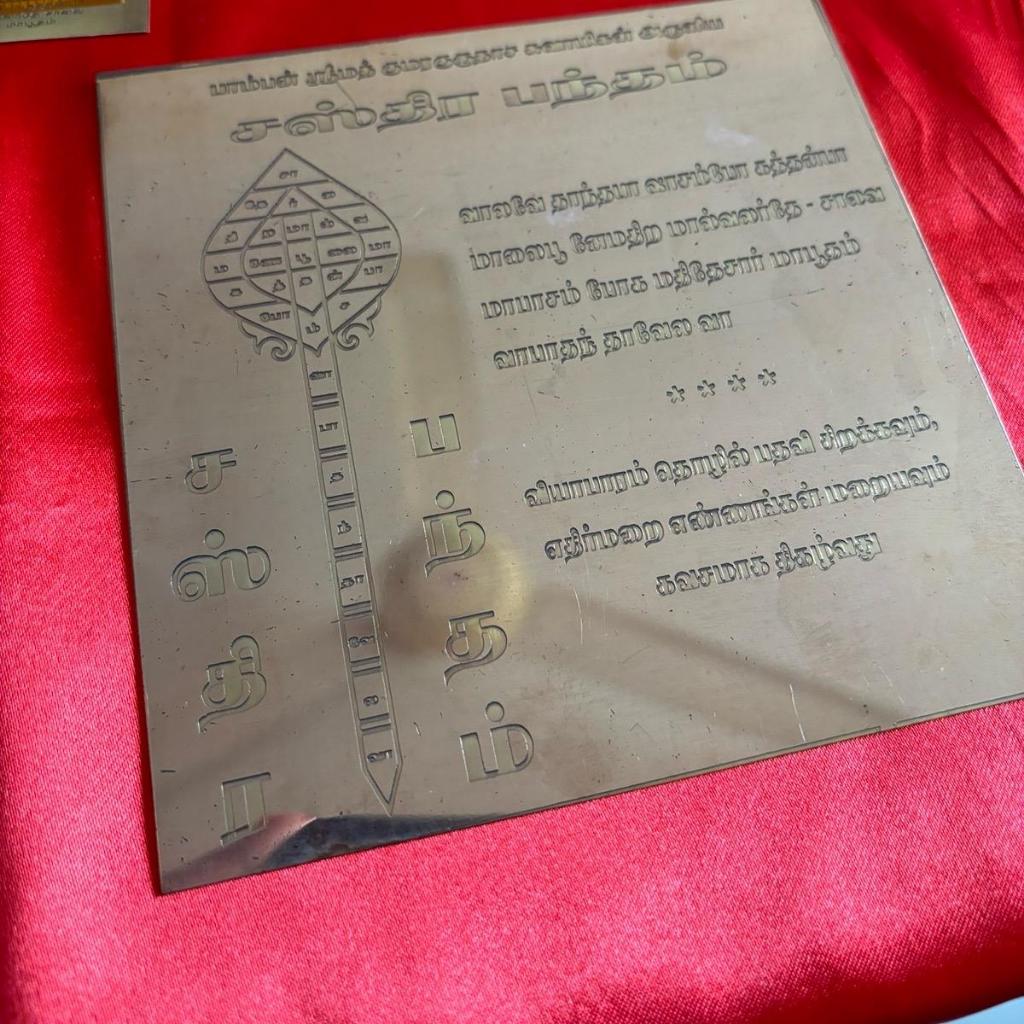 பாம்பன் ஸ்ரீமத் குமரகுருதாச சுவாமிகள் அருளிய
சஸ்திர பந்தம்
வாலவே தாந்தபா வாசம்போ கத்தன்பா
மாலைபூ ணேமதிற மால்வலர்தே - சாலவ
மாபாசம் போக மதிதேசார் மாபூதம்
வாபாதந் தாவேல வா
வியாபாரம் தொழில் பதவி சிறக்கவும்,
எதிர்மறை எண்ணங்கள் மறையவும்
கவசமாக திகழ்வது
ச ஸ் தி ர
ப ந் த ம்